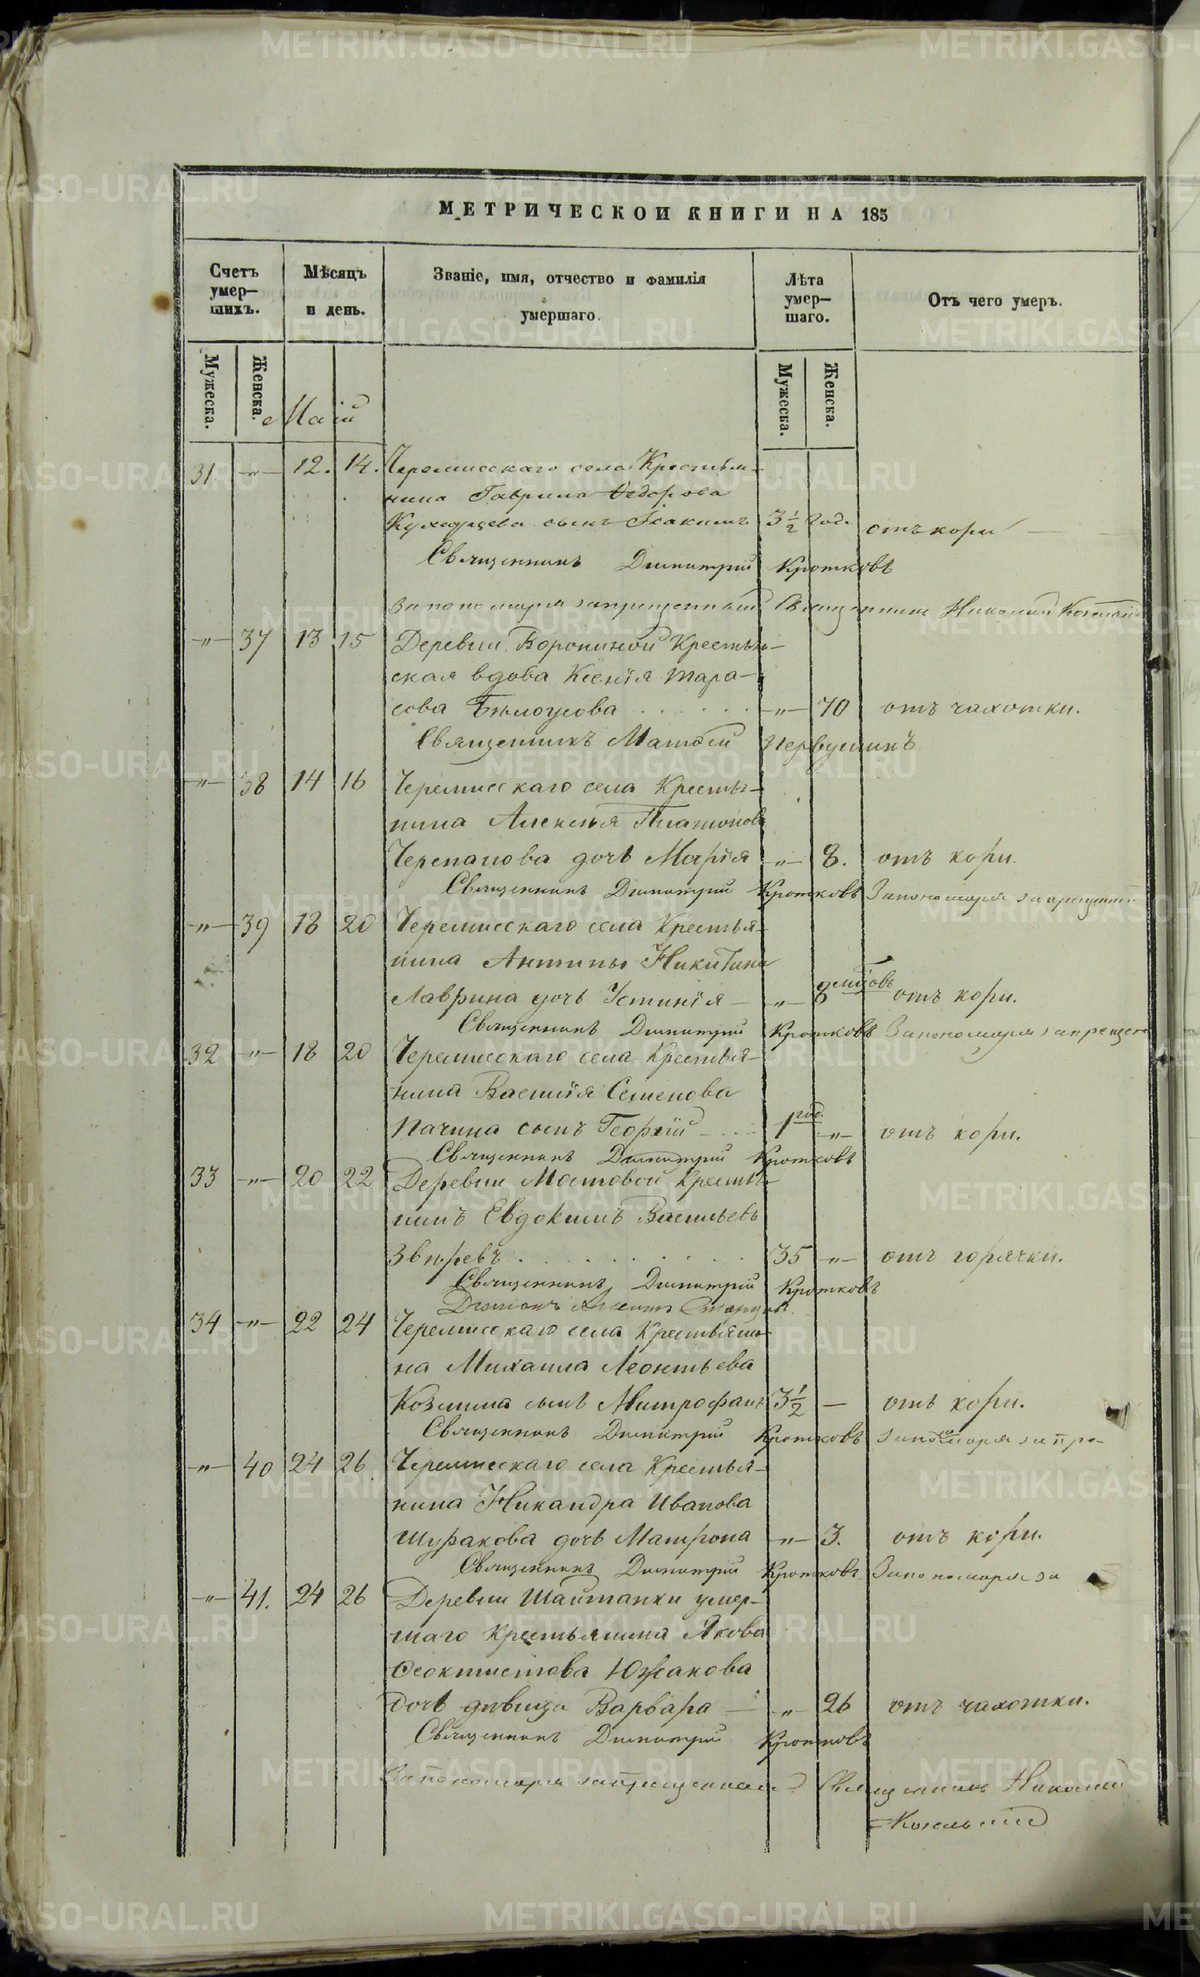 МЕТРИЧЕСКОЙ КНИГИ НА 185
Счетъ умер–шихъ.
Мѣсяцъ и день.
Званіе, имя, отчество и фамилія умершаго.
Лѣта умер–шаго.
Отъ чего умеръ.
Мужеска.
Женска.
Мужеска.
Женска.
Маій
31 –„– 12. 14. Черемисскаго села Крестья–
нина Гаврила Федорова
сынъ Іоакимъ 3½ год. отъ кори
Священникъ Димитрий Кротковъ
За пономаря запрещенный Священникъ Николай
–„– 37 13 15 Деревни Ворониной Крестьян–
ская вдова Ксенія Тара–
сова Бѣлоусова –„– 70 отъ чахотки.
Священникъ Матвей Первушинъ
–„– 38 14 16 Черемисскаго села Крестья–
нина Алексѣя Платонова
Черепанова дочь Марія –„– 8. отъ кори.
Священникъ Димитрий Кротковъ За пономаря запрещен
–„– 39 18 20 Черемисскаго села Крестья–
нина Антипы Никитина
Лаврина дочь Устинія – –„– 8 мѣ–цовъ отъ кори.
Священникъ Димитрий Кротковъ За пономаря запрещен
32 –„– 18 20 Черемисскаго села Крестья–
нина Василія Семенова
Пачина сынъ Георгій – 1 год. –„– отъ кори.
Священникъ Димитрий Кротковъ
33 –„– 20 22 Деревни Мостовой Крестья–
нинъ Евдокимъ Васильевъ
Звѣревъ 35 –„– отъ горячки.
Священникъ Димитрий Кротковъ
34 –„– 22 24 Черемисскаго села Крестьяни–
на Михаила Леонтьева
Козмина сынъ Митрофанъ 3½ – отъ кори.
Священникъ Димитрий Кротковъ За пономаря запре–
–„– 40 24 26 Черемисскаго села Крестья–
нина Никандра Иванова
Шуракова дочь Матрона –„– 3. отъ кори.
Священникъ Димитрий Кротковъ. За пономаря за
–„– 41. 24 26 Деревни Шайтанки умер–
шаго Крестьянина Якова
Феоктистова Южакова
дочь дѣвица Варвара – –„– 26 отъ чахотки.
Священникъ Димитрий Кротковъ
За пономаря запрещенный Священникъ Николай